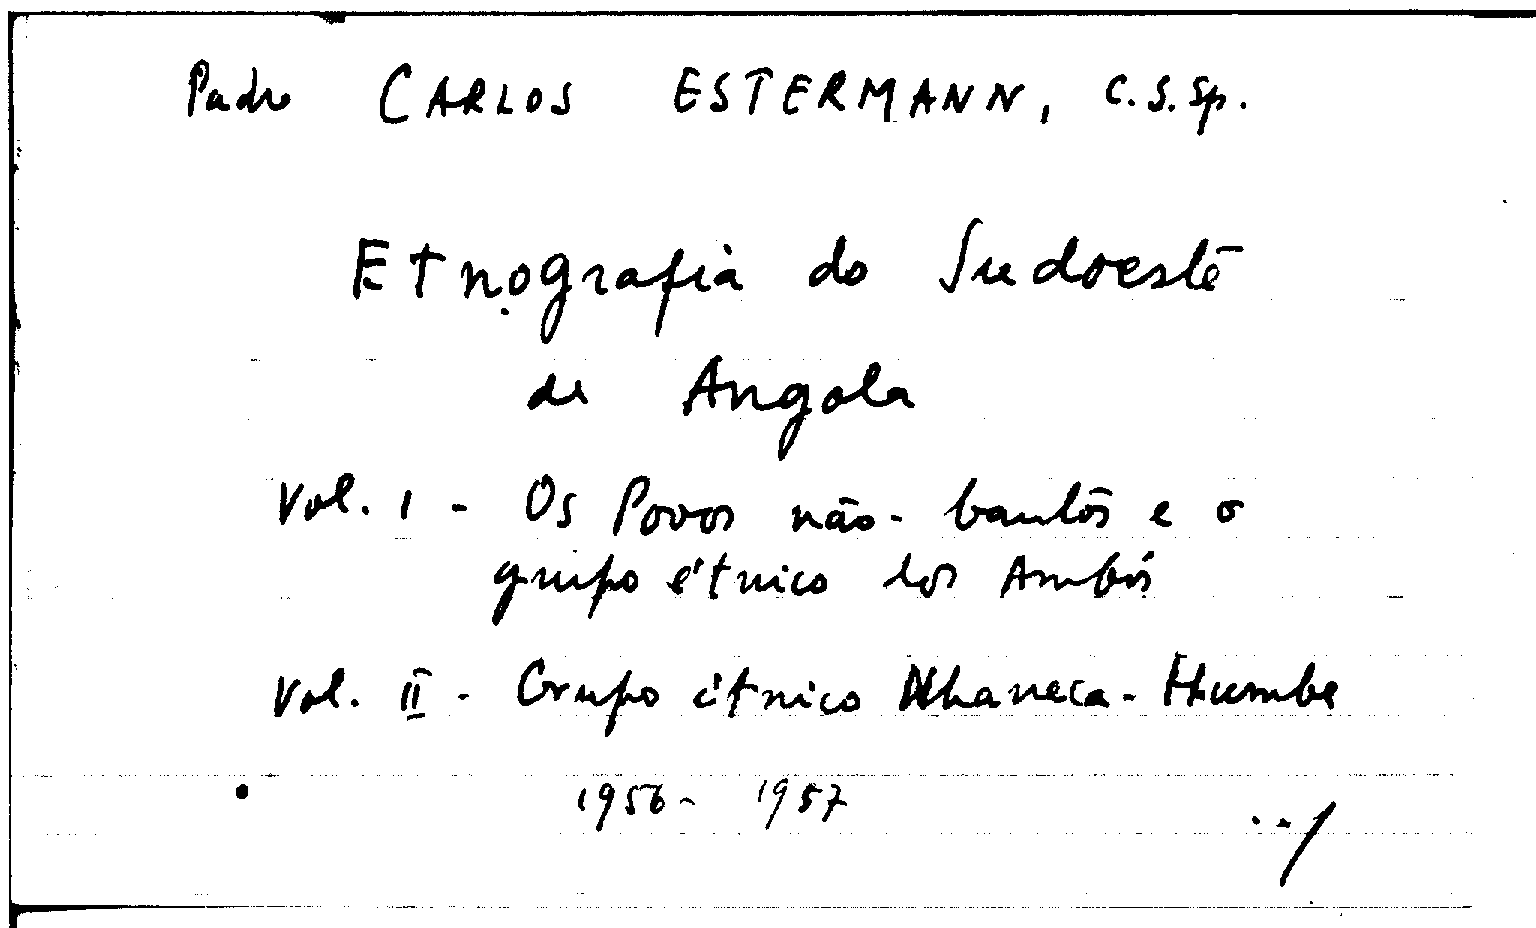 Padre CARLOS ESTERMANN, C.S.Sp.
Etnografia do Sudoeste
de Angola
Vol. I - Os Povos não-bantos e o
grupo étnico dos Ambós
Vol. II - Grupo étnico Nhaneca-Humbe
1956- 1957
../